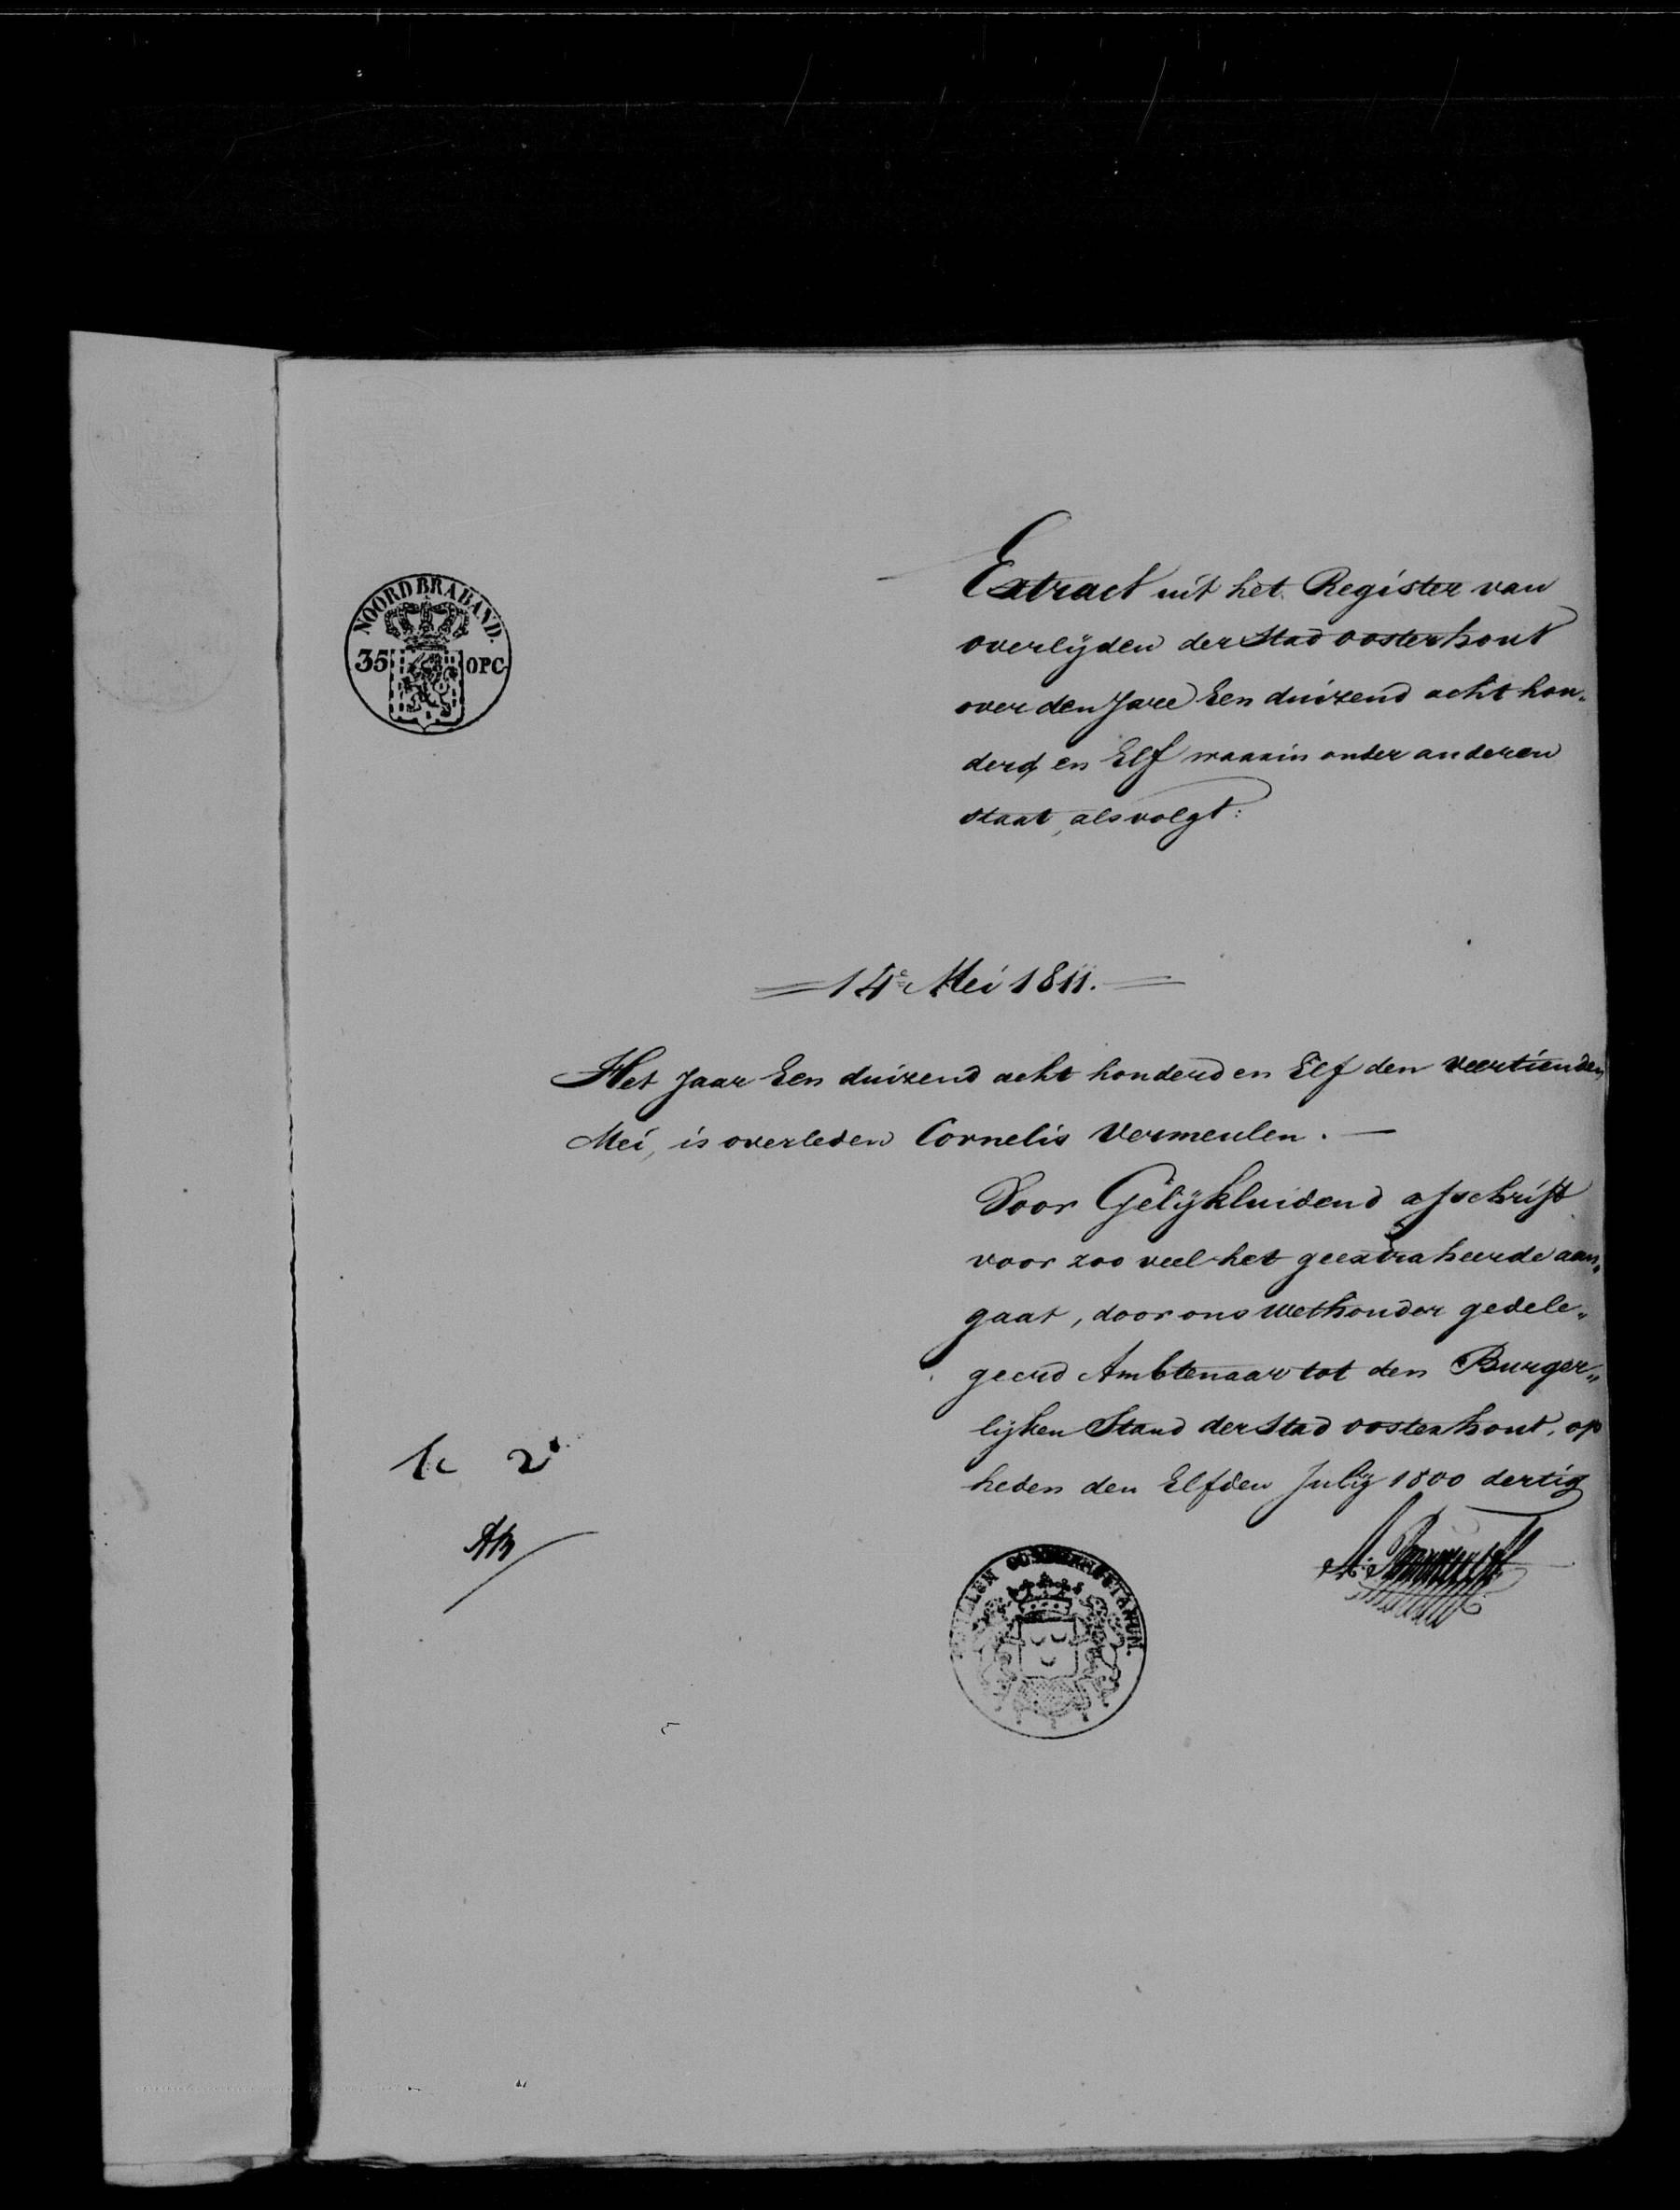 NOORD BRABAND.
35 OPC
Extract uit het Register van
overlijden der Stad oosterhout
over den Jare Een duizend acht hon„
derd en Elf waarin onder anderen
staat, als volgt:
14e Mei 1811.
Het Jaar Een duizend acht honderd en Elf den veertienden
Mei, is overleden Cornelis Vermeulen. —
Voor Gelijkluidend afschrift
voor zoo veel het geextraheerde aan„
gaat, door ons wethouder gedele„
geerd Ambtenaar tot den Burger„
lijken Stand der Stad oosterhout, op
heden den Elfden Julij 1800 dertig